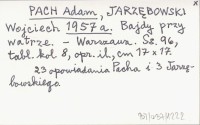 PACH Adam, JARZĘBOWSKI
Wojciech 1957a. Bajdy przy
watrze. - Warszawa. Ss. 96,
tabl. kol. 8, opr. il., cm 17 x 17.
23 opowiadania Pacha i 3 Jarzę-
bowskiego.